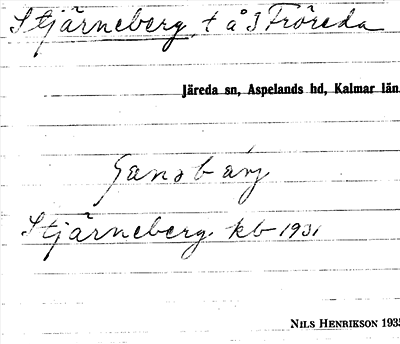 Stjärneberg, t å 3 Fröreda
Järeda sn, Aspelands hd, Kalmar län.
Stjärneberg. kb 1931
NILS HENRIKSON 1935